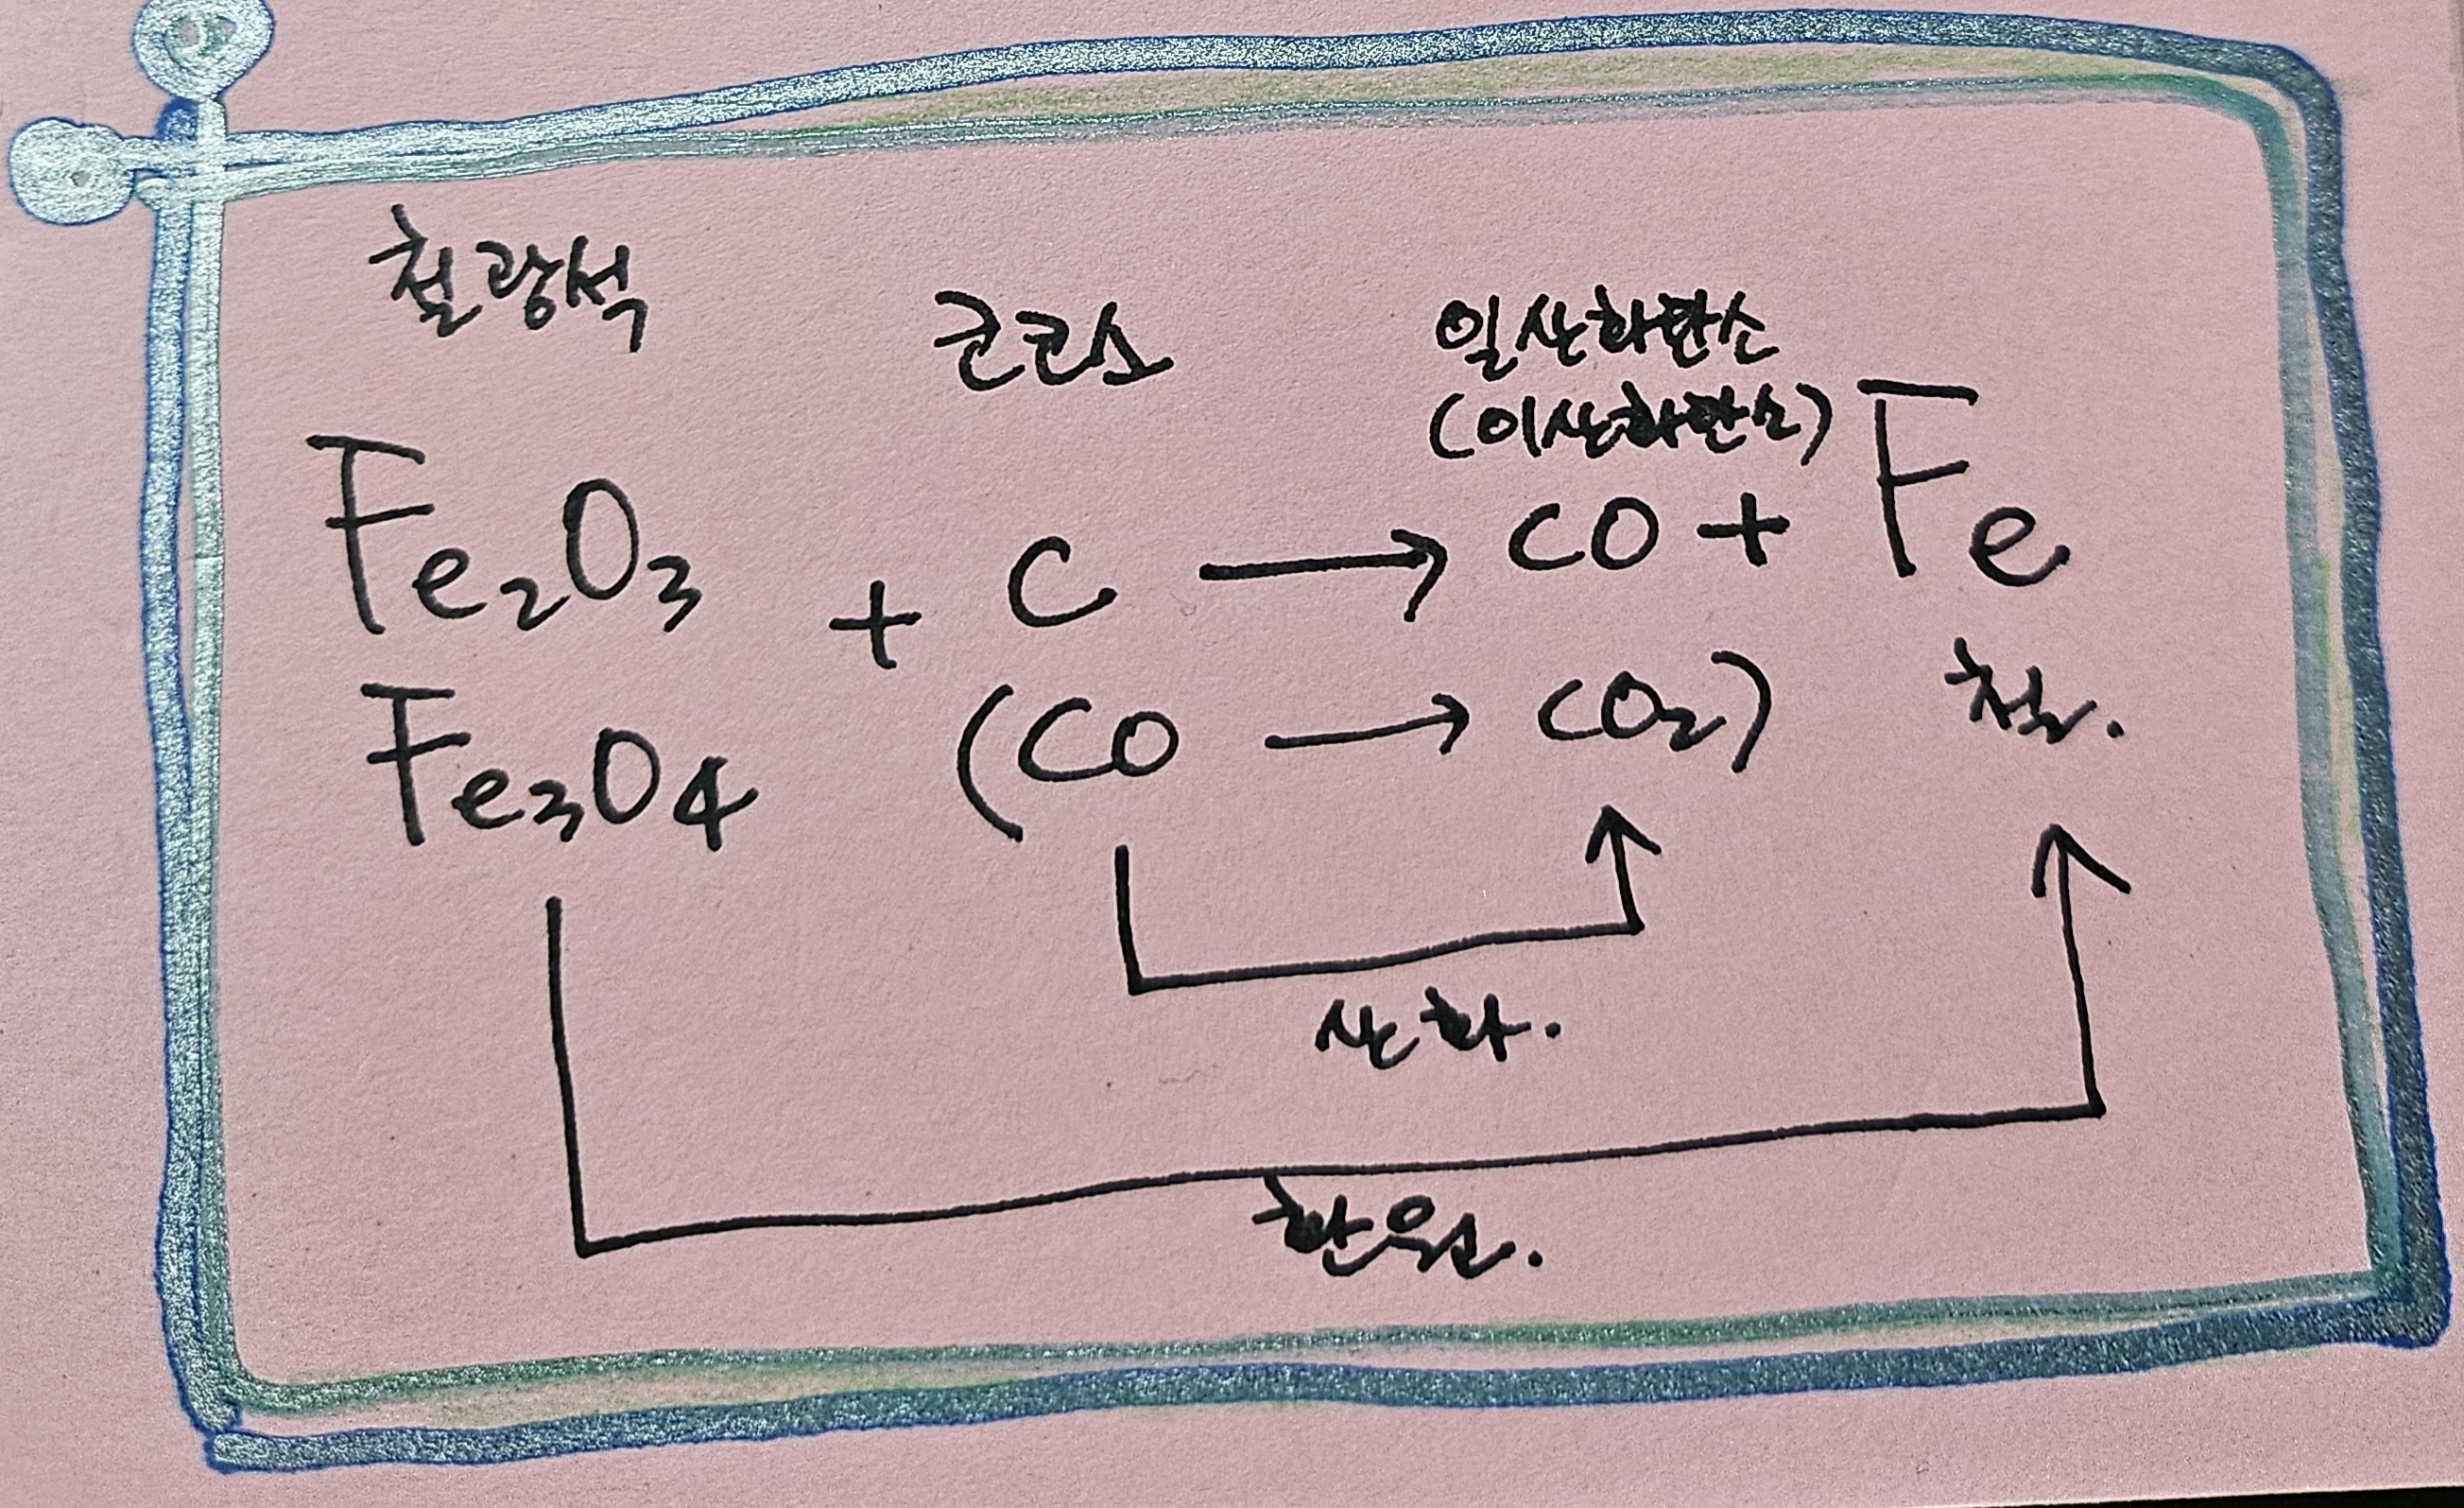 철광석
코크스
일산화탄소
(이산화탄소)
Fe₂O₃ + C → CO + Fe
Fe₃O₄ (CO → CO₂) 철.
산화.
환원.